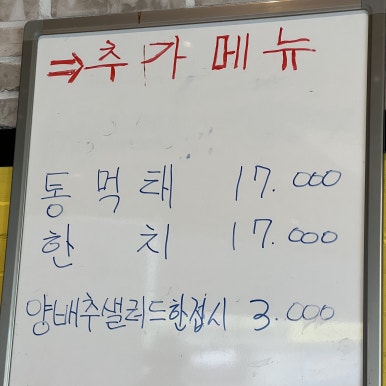 ⇒추가메뉴
통먹태 17.000
한치 17.000
양배추샐러드한접시 3.000